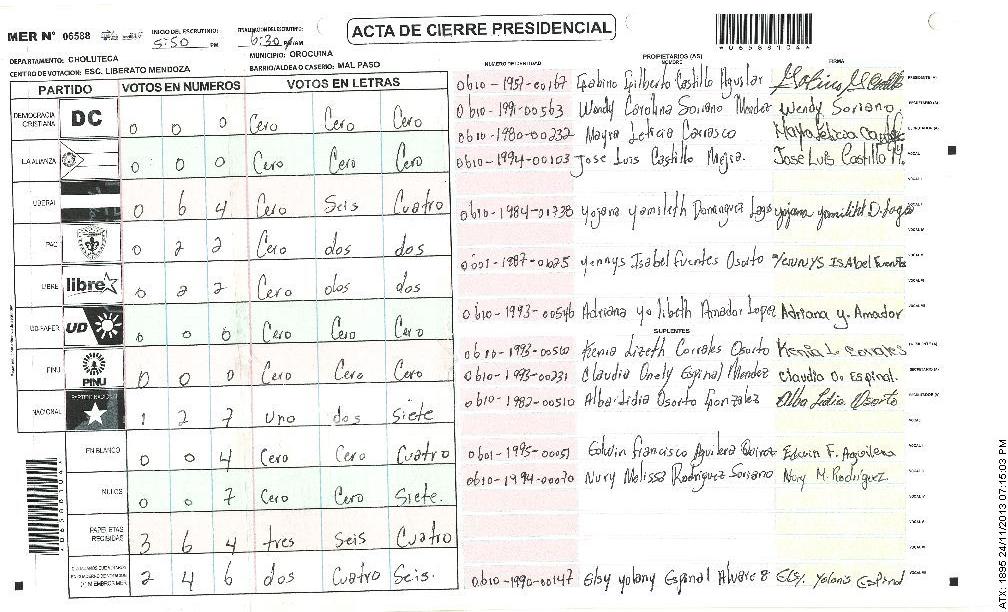 MER Nº 06588
INICIO DEL ESCRUTINIO:
5:50 PM
6:30 PM
ACTA DE CIERRE PRESIDENCIAL
06588104
DEPARTAMENTO: CHOLUTECA
MUNICIPIO: OROCUINA
CENTRO DE VOTACION: ESC. LIBERATO MENDOZA
BARRIO/ALDEA O CASERIO: MAL PASO
PARTIDO VOTOS EN NUMEROS VOTOS EN LETRAS
DEMOCRACIA CRISTIANA DC 0 0 0 Cero Cero Cero
LA ALIANZA 0 0 0 Cero Cero Cero
LIBERAL 0 6 4 Cero Seis Cuatro
PAC 0 2 2 Cero dos dos
LIBRE libre 0 2 2 Cero dos dos
UD-FAPER UD 0 0 0 Cero Cero Cero
PINU PINU 0 0 0 Cero Cero Cero
NACIONAL 1 2 7 uno dos siete
EN BLANCO 0 0 4 Cero Cero Cuatro
NULOS 0 0 7 Cero Cero Siete.
PAPELETAS RECIBIDAS 3 6 4 tres Seis Cuatro
2 4 6 dos Cuatro Seis.
NUMERO DE IDENTIDAD PROPIETARIOS (AS) NOMBRE FIRMA
0610-1957-00167 Gabino Gilberto Castillo Aguilar
0610-1991-00563 Wendy Carolina Soriano Mendez Wendy Soriano
0610-1980-00232 Mayra Leticia Carrasco
0610-1994-00103 Jose Luis Castillo Mejia. Jose Luis Castillo M.
0610-1984-01738 yojana yamileth Dominguez Lago
0601-1987-01025 yennys Isabel Fuentes Osorto YENNYS ISAbel Fuentes
0610-1993-00546 Adriana yolibeth Amador Lopez Adriana y. Amador
SUPLENTES
0610-1993-00560 Kenia Lizeth Corrales Osorto Kenia L. Corrales
0610-1993-00231 Claudia Onely Espinal Mendez Claudia O. Espinal.
0610-1982-00510 Alba Lidia Osorto Gonzalez Alba Lidia Osorto
0601-1995-00051 Edwin Francisco Aguilera Edwin F. Aguilera
0610-1994-00070 Nury Melissa Rodriguez Soriano Nury M. Rodriguez
0610-1990-00147 Elsy yolany Espinal
ATX: 1895 24/11/2013 07:15:03 PM